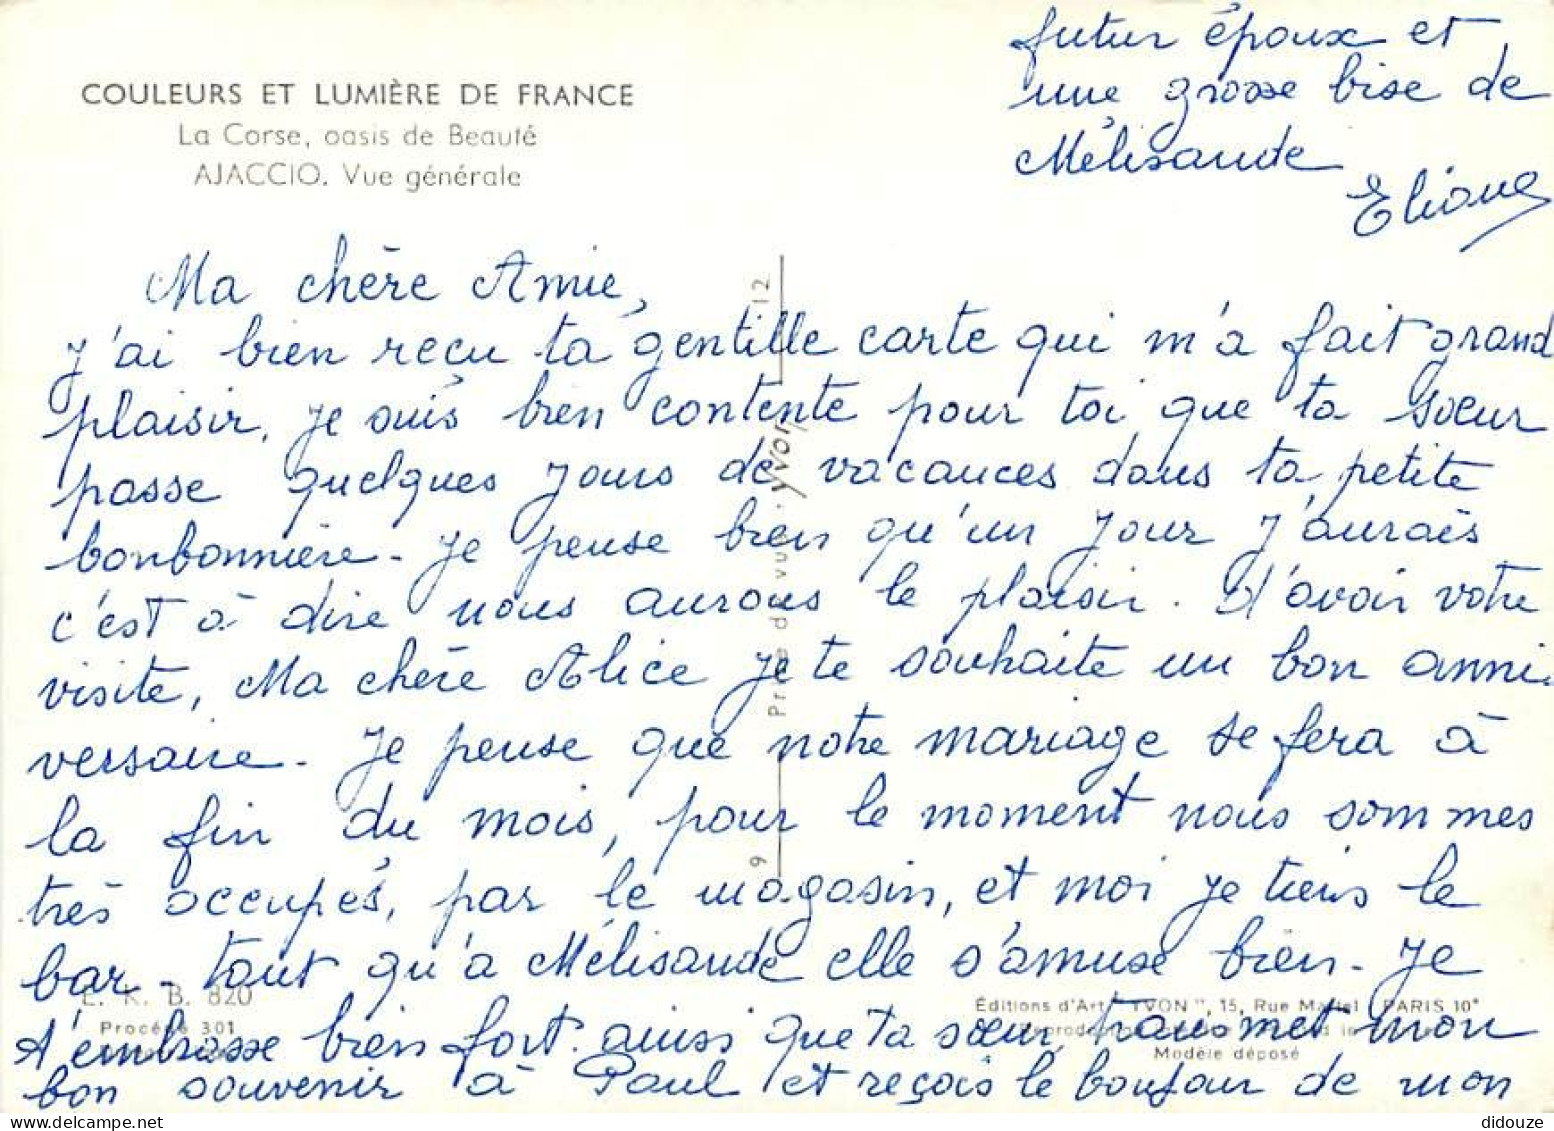 COULEURS ET LUMIÈRE DE FRANCE
La Corse, oasis de Beauté
AJACCIO. Vue générale
Ma chère Amie,
J'ai bien reçu ta gentille carte qui m'a fait grand
plaisir. Je suis bien contente pour toi que ta soeur
passe quelques jours de vacances dans ta petite
bonbonnière - Je pense bien qu'un jour j'aurais
c'est à dire nous aurons le plaisir. d'avoir votre
visite, Ma chère Alice je te souhaite un bon anni-
versaire - Je pense que notre mariage se fera à
la fin du mois, pour le moment nous sommes
très occupés, par le magasin, et moi je tiens le
bar - tant qu'à Mélisande elle s'amuse bien - Je
t'embrasse bien fort ainsi que ta soeur, transmet mon
bon souvenir à Paul et reçois le bonjour de mon
futur époux et
une grosse bise de
Mélisande
Eliane
12
Yvon
9
E. K. B. 820
Procédé 301
Éditions d'Art "YVON", 15, Rue Martel - PARIS 10°
Modèle déposé
didouze